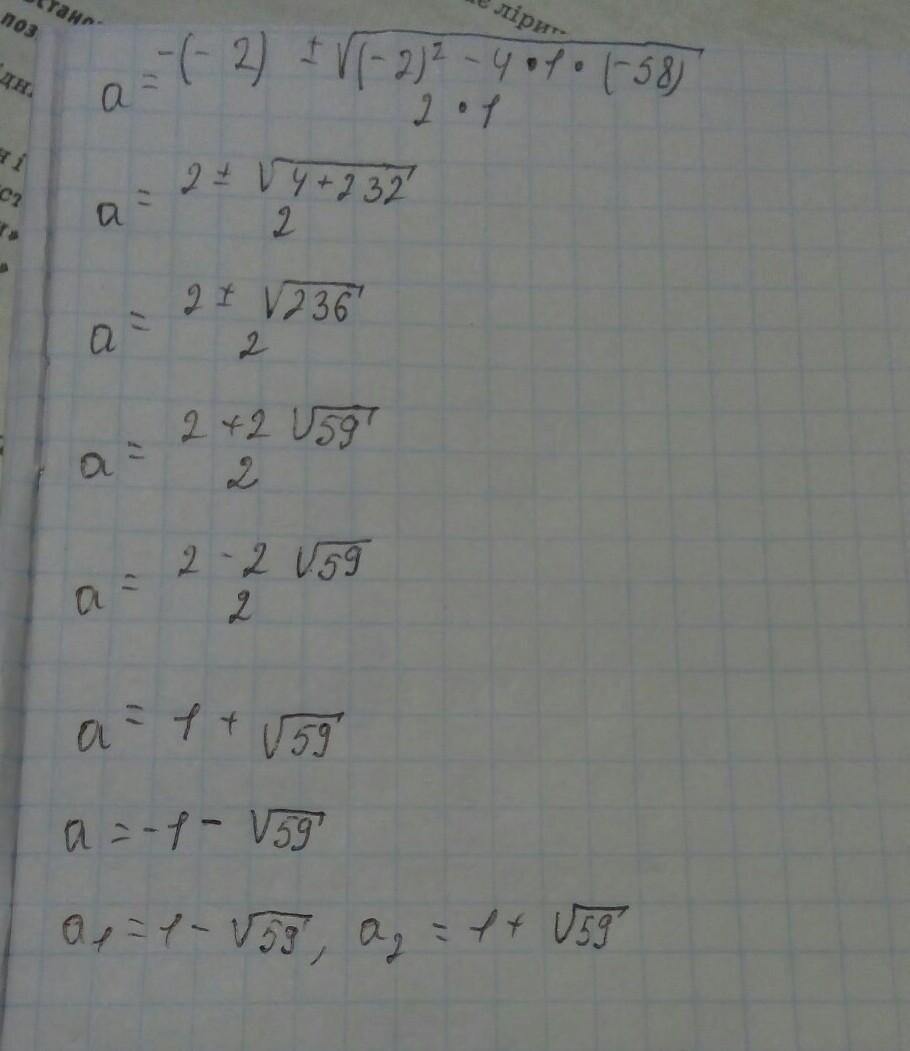 лірик
стано
поз
a = -(-2) ± √((-2)² - 4 • 1 • (-58))
2 • 1
a = 2 ± √(4 + 232)
2
a = 2 ± √236
2
a = 2 + 2 √59
2
a = 2 - 2 √59
2
a = 1 + √59
a = -1 - √59
a₁ = 1 - √59, a₂ = 1 + √59